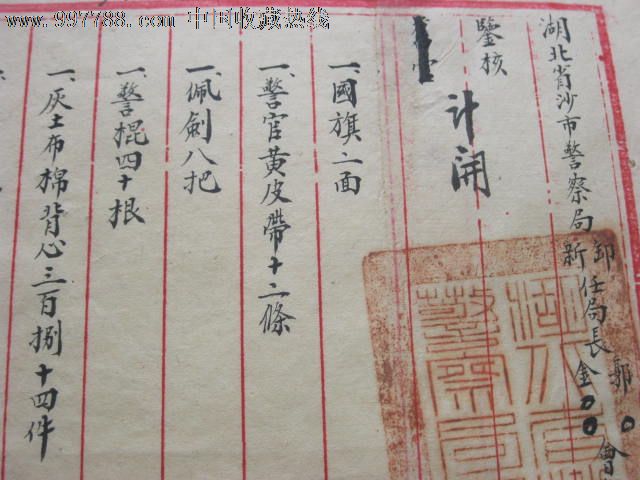 www.997788.com 中国收藏热线
湖北省沙市警察局卸新任局長郭○金○○會
鑒核
计開
一、國旗二面
一、警官黃皮帶十二條
一、佩劍八把
一、警棍四十根
一、灰土布棉背心三百捌十四件